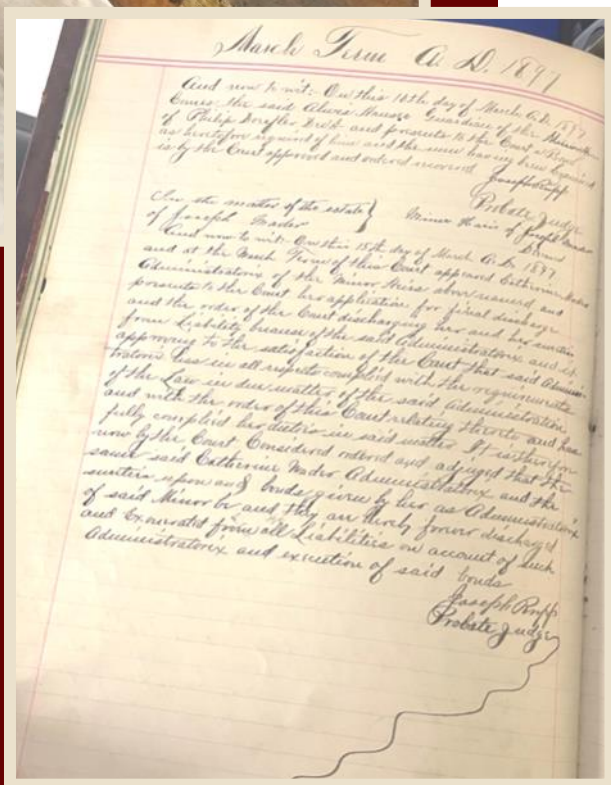 March Term A. D. 1897
And now to wit:- On this 10th day of March A. D. 1897
Comes the said Guardian of the
of Philip and presents to the Court a Bond
as heretofore required of him and the same having been Examined
is by the Court approved and ordered recorded
Joseph Rupp
Probate Judge
In the matter of the estate }
of Joseph Mader
Minor Heirs of Joseph Mader
And now to wit:- On this 15th day of March A. D. 1897
and at the March Term of this Court appeared Catherine Mader
Administratorix of the Minor Heirs above named, and
presents to the Court her application for final discharge
and the order of the Court discharging her and her sureties
from Liability because of the said Administratorix and it
appearing to the satisfaction of the Court that said Adminis-
tratorix has in all respects complied with the requirements
of the Law in due matter of the said Administration
and with the order of this Court relating thereto and has
fully complied her duties in said matter It is therefor
now by the Court Considered ordered and adjuged that the
same said Catherine Mader Administratorix and the
suerties upon any bonds given by her as Administratorix
of said Minor be and they are hereby forever discharged
and Exonerated from all Liabilities on account of such
Administratorix and execution of said bonds
Joseph Rupp
Probate Judge